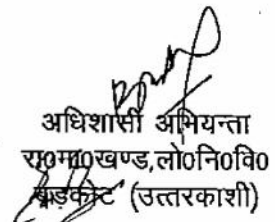 अधिशासी अभियन्ता
रा०मा०खण्ड,लो०नि०वि०
बड़कोट (उत्तरकाशी)